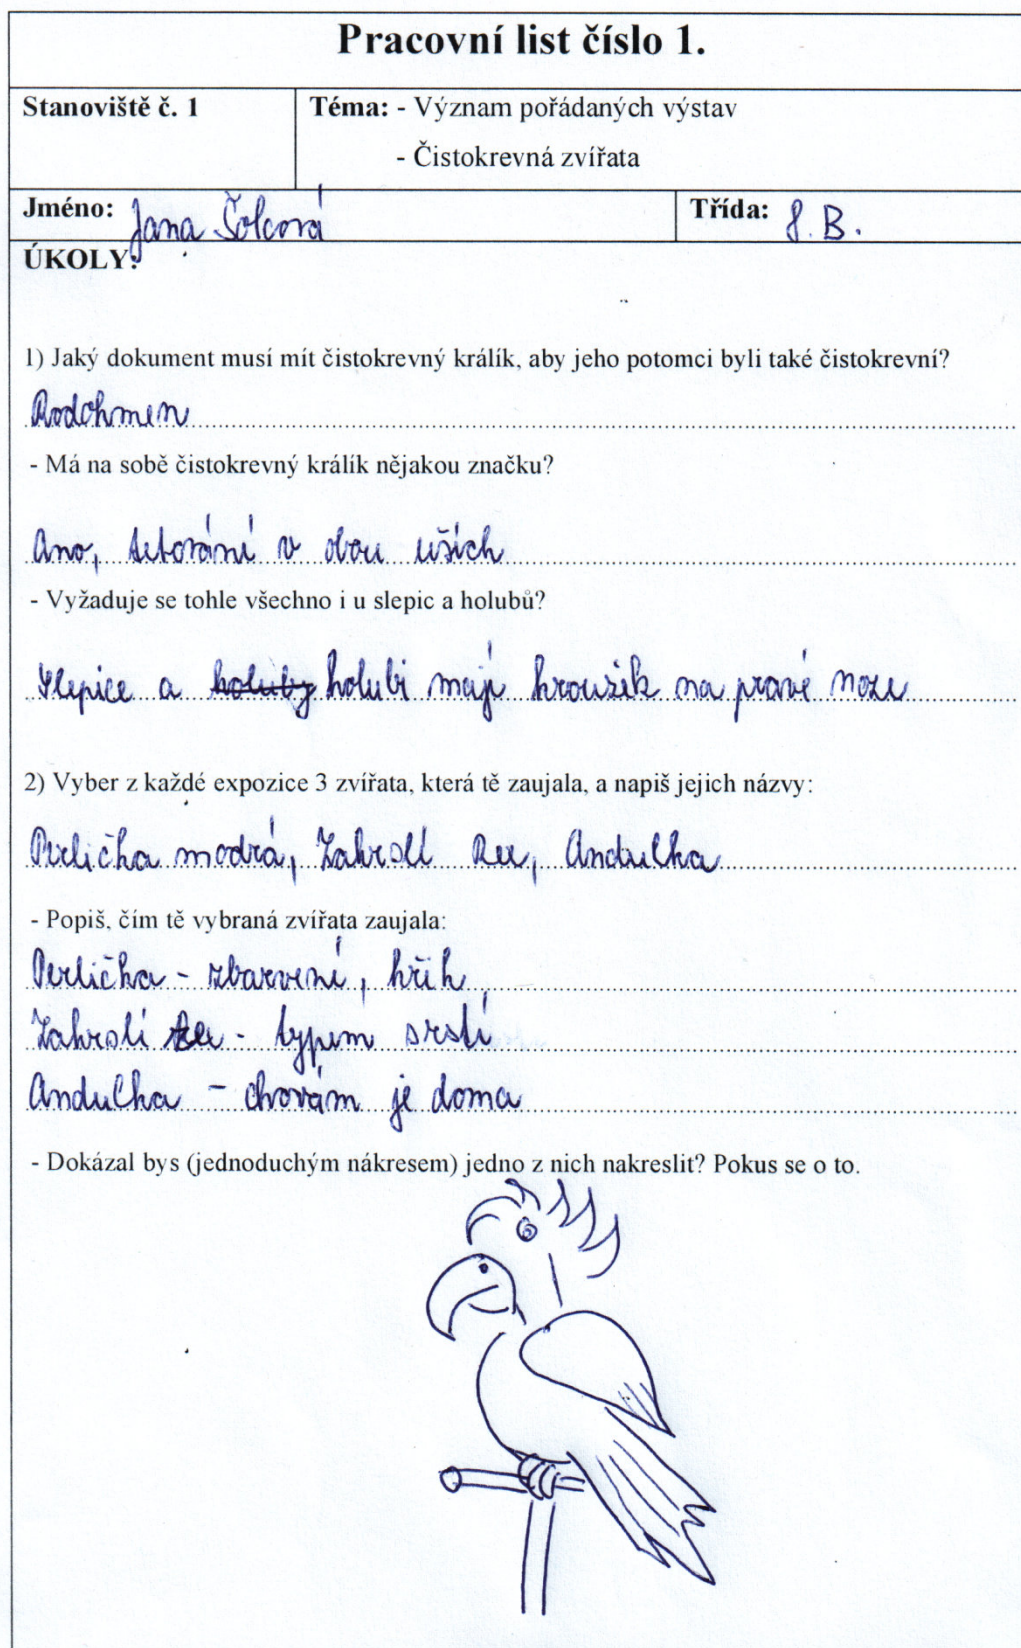 Pracovní list číslo 1.
Stanoviště č. 1
Téma: - Význam pořádaných výstav
- Čistokrevná zvířata
Jméno: Jana Šolcová
Třída: 8. B.
ÚKOLY:
1) Jaký dokument musí mít čistokrevný králík, aby jeho potomci byli také čistokrevní?
Rodokmen
- Má na sobě čistokrevný králík nějakou značku?
Ano, tetování v obou uších
- Vyžaduje se tohle všechno i u slepic a holubů?
Slepice a holuby holubi mají kroužek na pravé noze
2) Vyber z každé expozice 3 zvířata, která tě zaujala, a napiš jejich názvy:
Perlička modrá, Zakrslí Rex, Andulka
- Popiš, čím tě vybraná zvířata zaujala:
Perlička - zbarvení, křik
Zakrslí Rex - typem srstí
Andulka - chovám je doma
- Dokázal bys (jednoduchým nákresem) jedno z nich nakreslit? Pokus se o to.